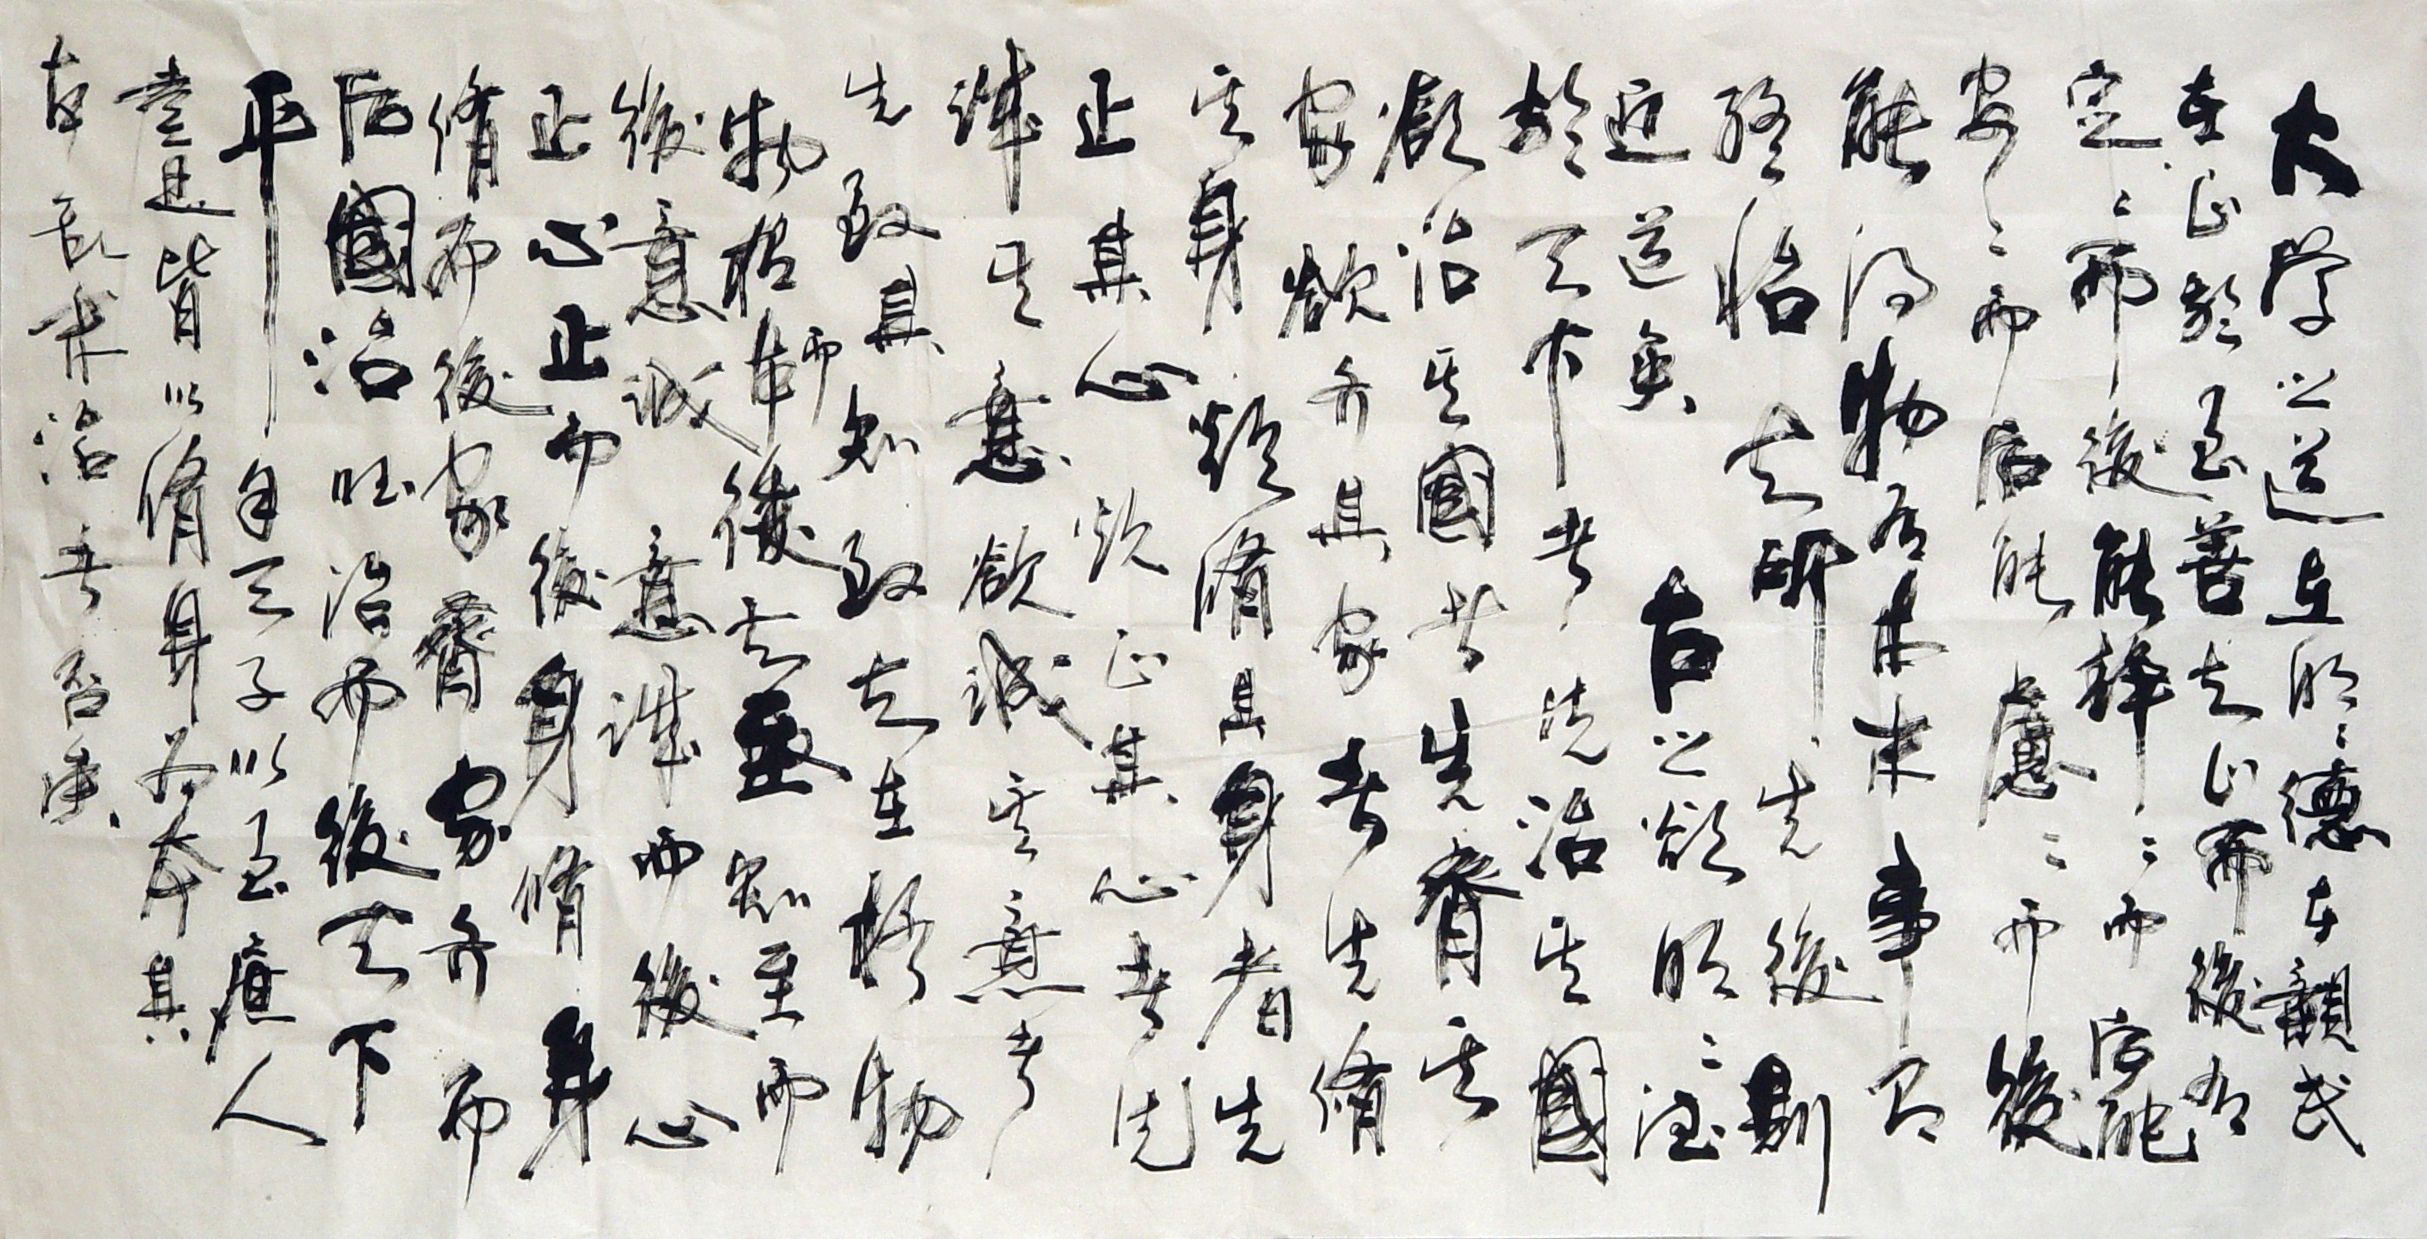 大学之道在明〻德在親民
在止於至善知止而後有
定〻而後能静〻而后能
安〻而后能慮〻而後
能得物有本末事有
終始知所先後則
近道矣 古之欲明〻德
於天下者先治其國
欲治其國者先齊其
家欲齐其家者先脩
其身欲脩其身者先
正其心欲正其心者先
誠其意欲誠其意者
先致其知致知在格物
物格而後知至知至而
後意誠意誠而後心
正心正而後身脩身
脩而後家齊家齐而
后國治国治而後天下
平自天子以至庶人
壹是皆以脩身为本其
本乱末治者否矣